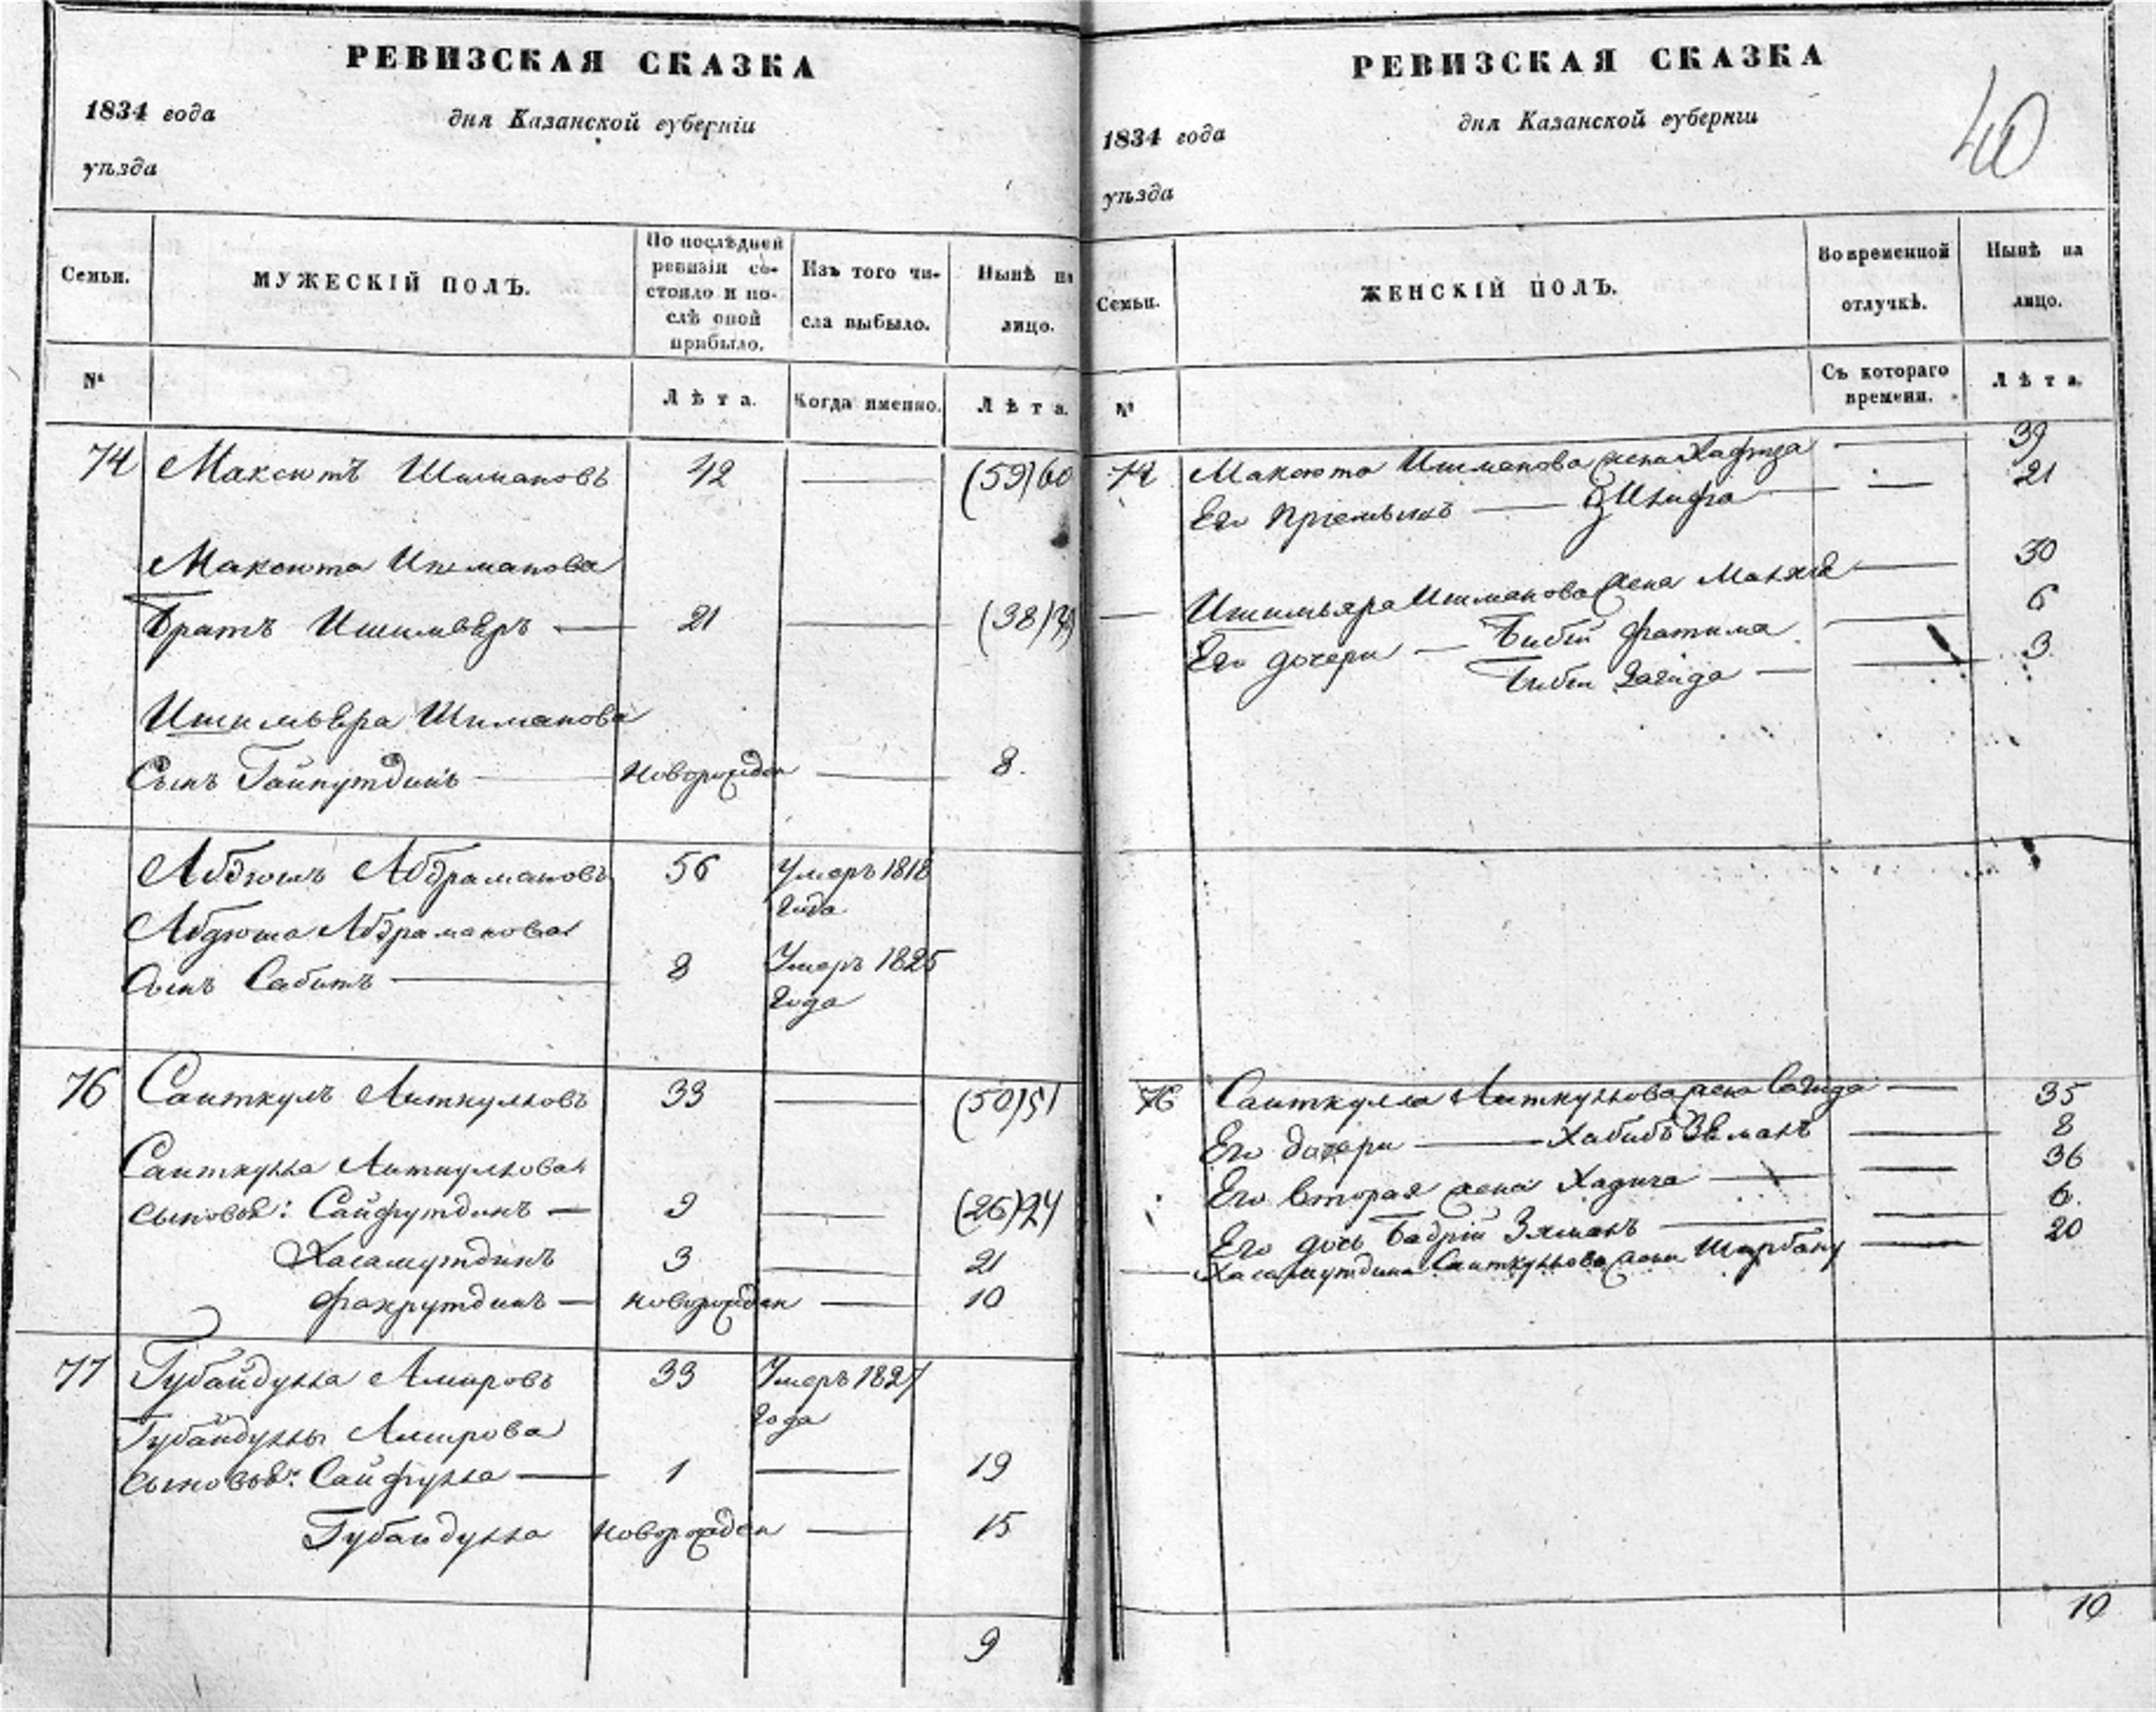 РЕВИЗСКАЯ СКАЗКА
1834 года
дня Казанской губернiи
уѣзда
Семьи.
МУЖЕСКIЙ ПОЛЪ.
По послѣдней ревизiи со-
стояло и по-
слѣ оной
прибыло.
Изъ того чи-
сла выбыло.
Нынѣ на
лицо.
№
Лѣта.
Когда именно.
Лѣта.
74 Максютъ Ишмановъ 42 — (59) 60
Максюта Ишманова
братъ Ишимьяръ — 21 — (38)
Ишимьяра Ишманова
Сынъ Гайнутдинъ — новорожден — 8.
Абдюшъ Абдрамановъ 56 Умеръ 1818
года
Абдюша Абдраманова
Сынъ Сабитъ — 8 Умеръ 1825
года
76 Саиткулъ Аиткуловъ 33 — (50) 51
Саиткулла Аиткулова
сыновья: Сайфутдинъ — 9 — (26) 24
Хасамутдинъ 3 — 21
Фахрутдинъ — новорожден — 10
77 Губайдулла Амировъ 33 Умеръ 1827
года
Губайдуллы Амирова
сыновья: Сайфулла — 1 — 19
Губайдулла новорожден — 15
9
РЕВИЗСКАЯ СКАЗКА
40
1834 года
дня Казанской губернiи
уѣзда
Семьи.
ЖЕНСКIЙ ПОЛЪ.
Во временной
отлучкѣ.
Нынѣ на
лицо.
№
Съ котораго
времени.
Лѣта.
74 Максюта Ишманова жена Хафиза — 39
Его — — 21
Ишимьяра Ишманова жена — 30
Его дочери — Бибы Фатима — 6
Бибы Загида — — 3
76 Саиткулла Аиткулова жена Сагида — 35
Его дочери — Хабибъ Зяманъ — 8
Его вторая жена Хадича — — 36
Его дочь Бадрiй Зяманъ — — 6.
— Хасамутдина Саиткулова жена Шарбану — 20
10